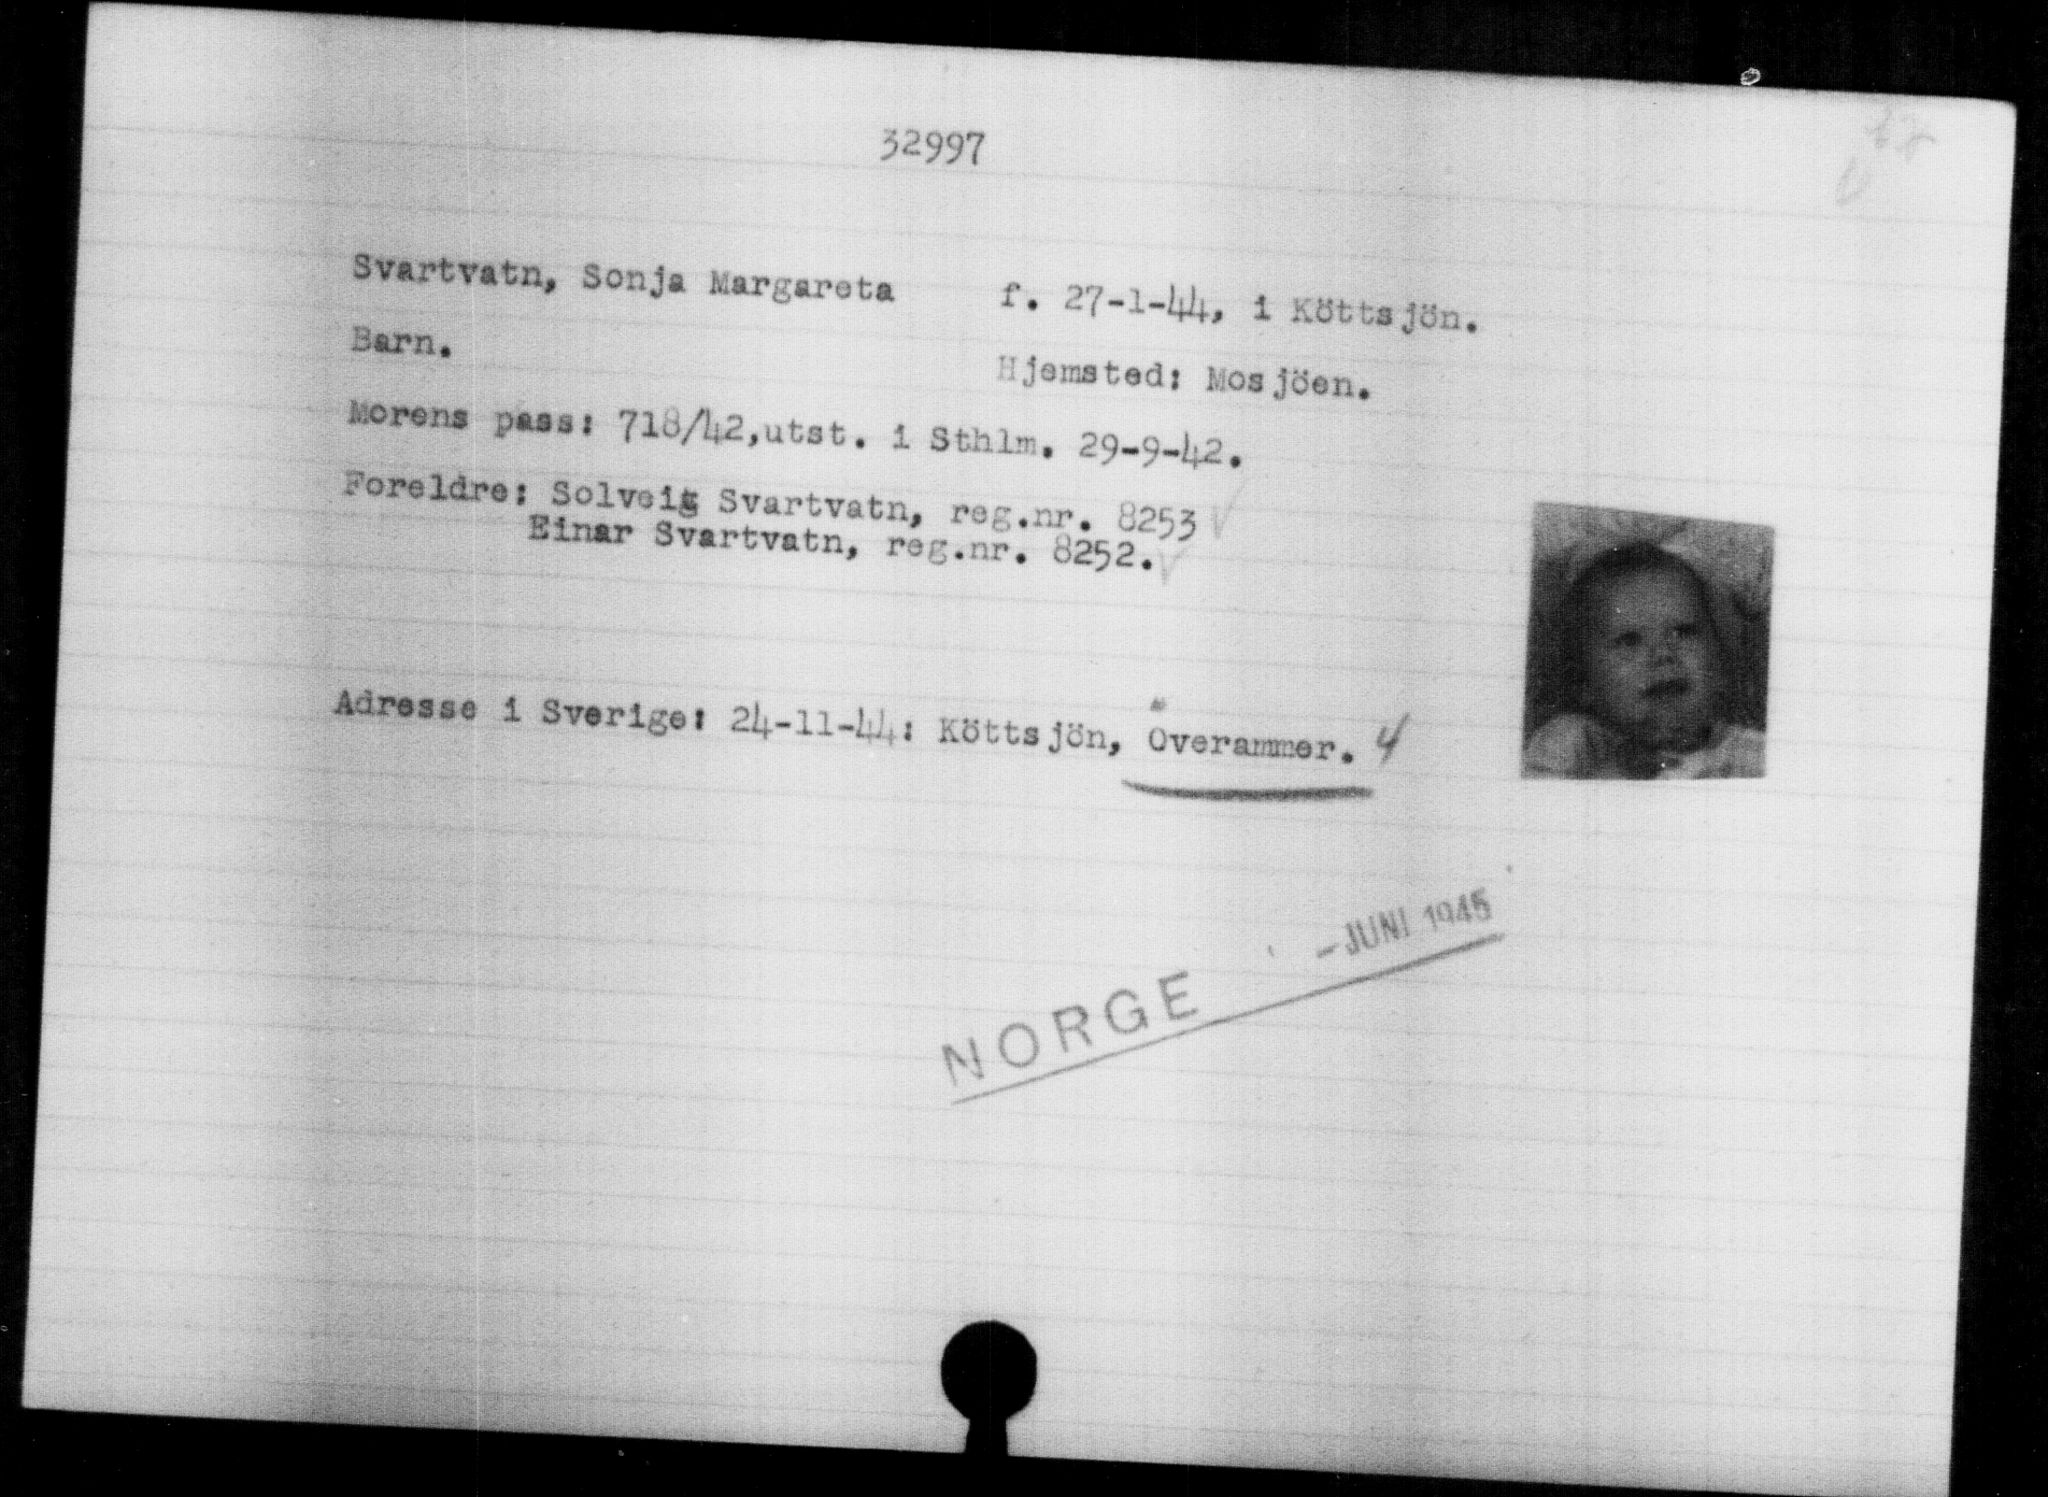 32997
Svartvatn, Sonja Margareta f. 27-1-44, i Köttsjön.
Barn. Hjemsted: Mosjöen.
Morens pass: 718/42,utst. i Sthlm. 29-9-42.
Foreldre: Solveig Svartvatn, reg.nr. 8253
Einar Svartvatn, reg.nr. 8252.
Adresse i Sverige: 24-11-44: Köttsjön, Överammer. 4
NORGE -JUNI 1945